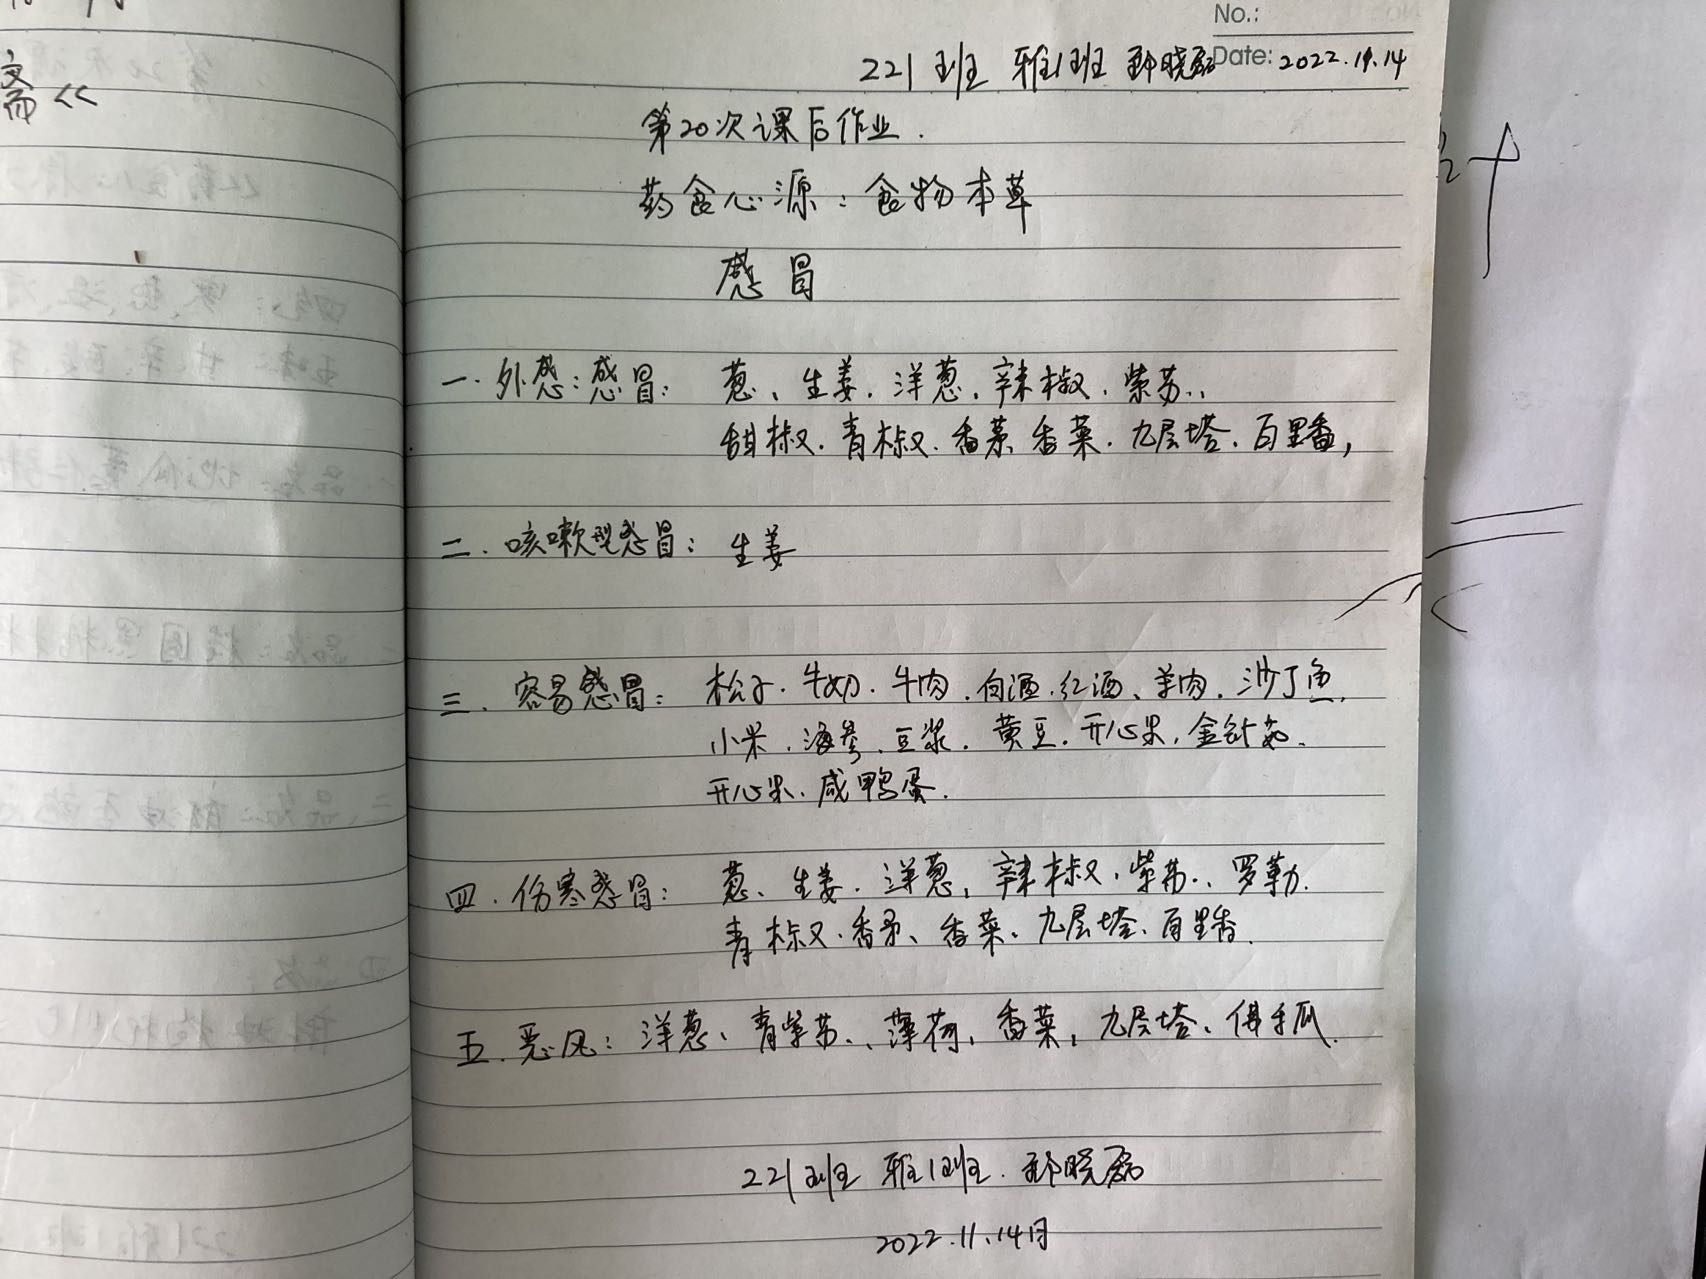 No.:
221班 雅1班 郅晓磊 Date: 2022.11.14
第20次课后作业.
药食心源：食物本草
感冒
一. 外感：感冒： 葱、生姜. 洋葱. 辣椒. 紫苏..
甜椒. 青椒. 香茅 香菜. 九层塔. 百里香,
二. 咳嗽型感冒： 生姜
三. 容易感冒： 松子. 牛奶. 牛肉. 白酒. 红酒、羊肉. 沙丁鱼.
小米. 海参. 豆浆. 黄豆. 开心果, 金针菇.
开心果. 咸鸭蛋.
四. 伤寒感冒： 葱、生姜. 洋葱, 辣椒, 紫苏.. 罗勒.
青椒. 香茅、香菜. 九层塔. 百里香.
五. 恶风：洋葱、青紫苏、薄荷, 香菜, 九层塔、佛手瓜.
221班 雅1班. 郅晓磊
2022.11.14日